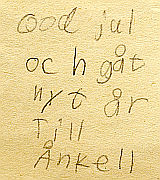 ood jul
och gåt
nyt år
Till
Ånkell